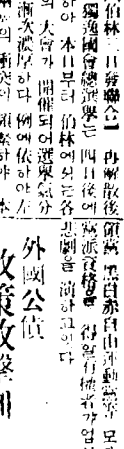 伯林二日發聯合】 再解散後
獨逸國會總選擧는 四日後에
하야 本日부터 伯林에서는各
의 大會가 開催되여選擧氣分
漸次濃厚하다 例에依하야左
의衝突이 頻繁하야 本
領袖 黑白赤自由運動黨等 모
黨派資格을 得할有
悲劇을 演하고잇다
外國公債
政策攻擊